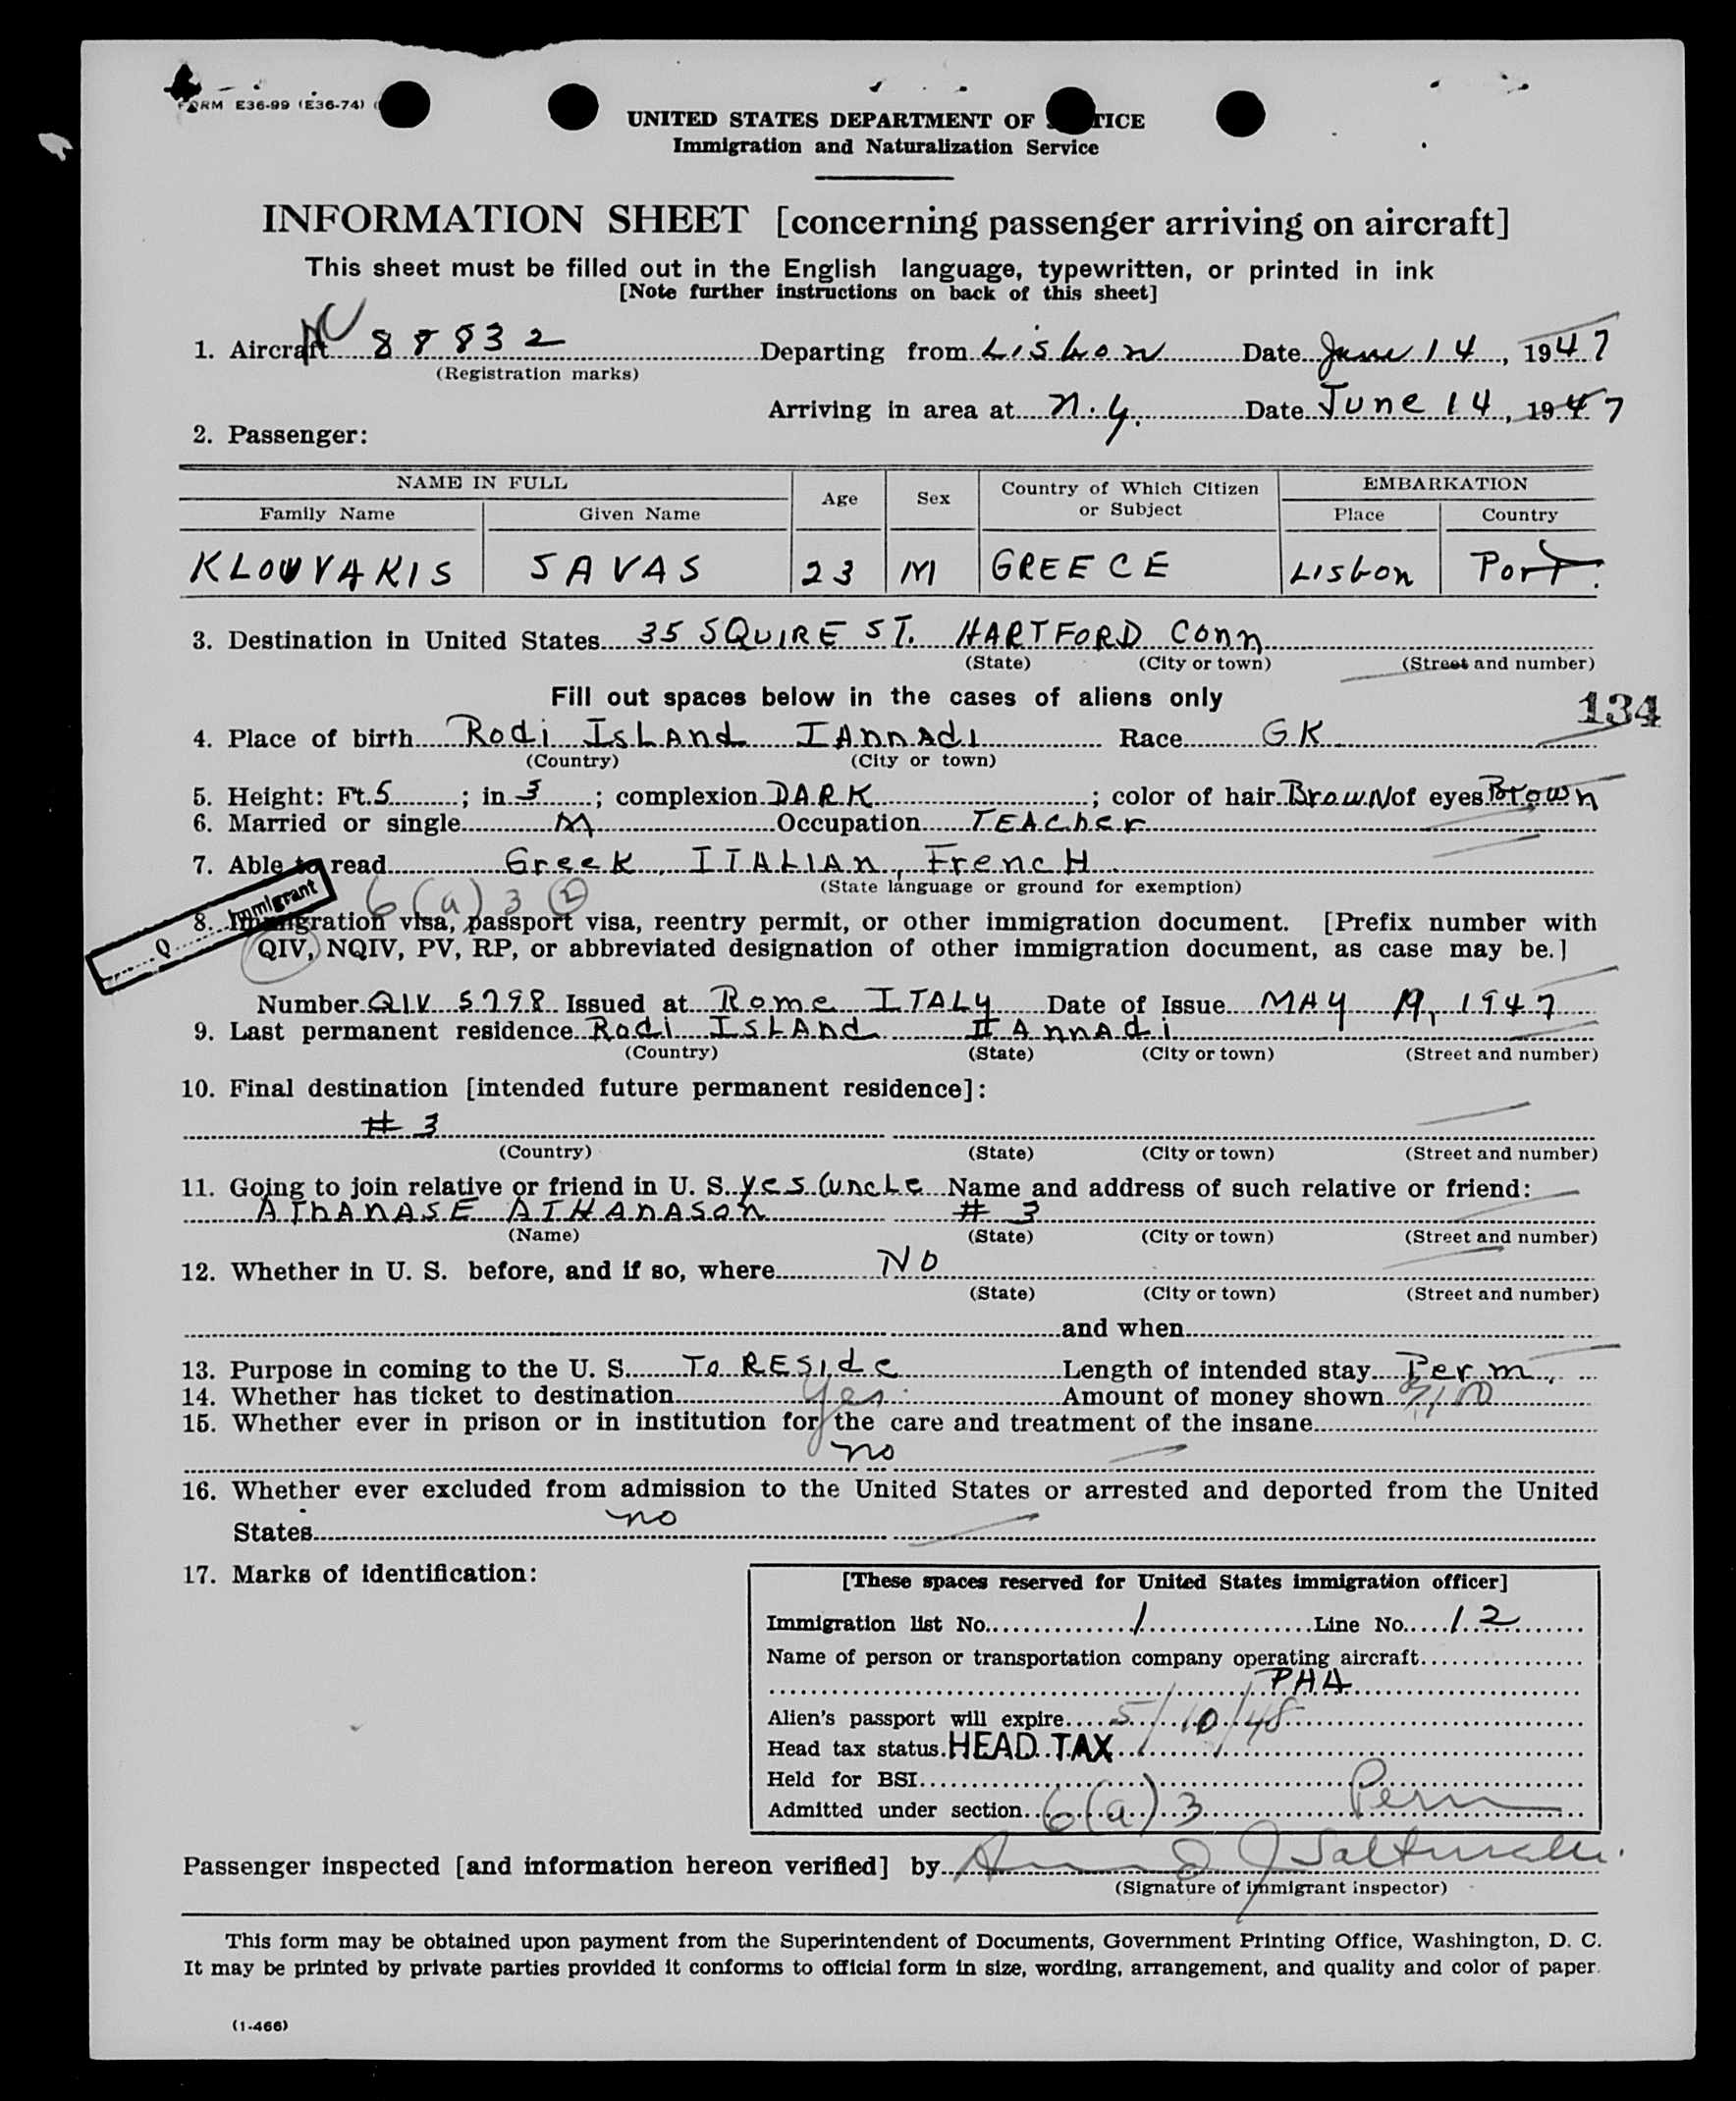 FORM E36-99 (E36-74)
UNITED STATES DEPARTMENT OF TICE
Immigration and Naturalization Service
INFORMATION SHEET [concerning passenger arriving on aircraft]
This sheet must be filled out in the English language, typewritten, or printed in ink
[Note further instructions on back of this sheet]
1. Aircraft NC 88832 Departing from Lisbon Date June 14, 1947
(Registration marks)
Arriving in area at N.Y. Date June 14, 1947
2. Passenger:
NAME IN FULL Age Sex Country of Which Citizen or Subject EMBARKATION
Family Name Given Name Place Country
KLOUVAKIS SAVAS 23 M GREECE Lisbon Port.
3. Destination in United States 35 SQUIRE ST. HARTFORD Conn
(State) (City or town) (Street and number)
Fill out spaces below in the cases of aliens only
134
4. Place of birth Rodi IsLAnd IAnnAdi Race GK
(Country) (City or town)
5. Height: Ft. 5 ; in. 3 ; complexion DARK ; color of hair BrowN of eyes Brown
6. Married or single M Occupation TEAcher
7. Able to read Greek, ITALIAN, FrencH
(State language or ground for exemption)
Q Immigrant
6(a)3 2
8. Immigration visa, passport visa, reentry permit, or other immigration document. [Prefix number with
QIV, NQIV, PV, RP, or abbreviated designation of other immigration document, as case may be.]
Number QIV 5798 Issued at Rome ITALy Date of Issue MAY 19, 1947
9. Last permanent residence Rodi IsLAnd IAnnAdi
(Country) (State) (City or town) (Street and number)
10. Final destination [intended future permanent residence]:
# 3
(Country) (State) (City or town) (Street and number)
11. Going to join relative or friend in U. S. yes (uncLe Name and address of such relative or friend:
AThANASE ATHAnASon # 3
(Name) (State) (City or town) (Street and number)
12. Whether in U. S. before, and if so, where No
(State) (City or town) (Street and number)
and when
13. Purpose in coming to the U. S. To RESide Length of intended stay Perm.
14. Whether has ticket to destination yes Amount of money shown
15. Whether ever in prison or in institution for the care and treatment of the insane
no
16. Whether ever excluded from admission to the United States or arrested and deported from the United
States no
17. Marks of identification:
[These spaces reserved for United States immigration officer]
Immigration list No. 1 Line No. 12
Name of person or transportation company operating aircraft
PAA
Alien's passport will expire 5/10/48
Head tax status. HEAD TAX
Held for BSI
Admitted under section 6(a)3 Perm
Passenger inspected [and information hereon verified] by
(Signature of immigrant inspector)
This form may be obtained upon payment from the Superintendent of Documents, Government Printing Office, Washington, D. C.
It may be printed by private parties provided it conforms to official form in size, wording, arrangement, and quality and color of paper.
(1-466)